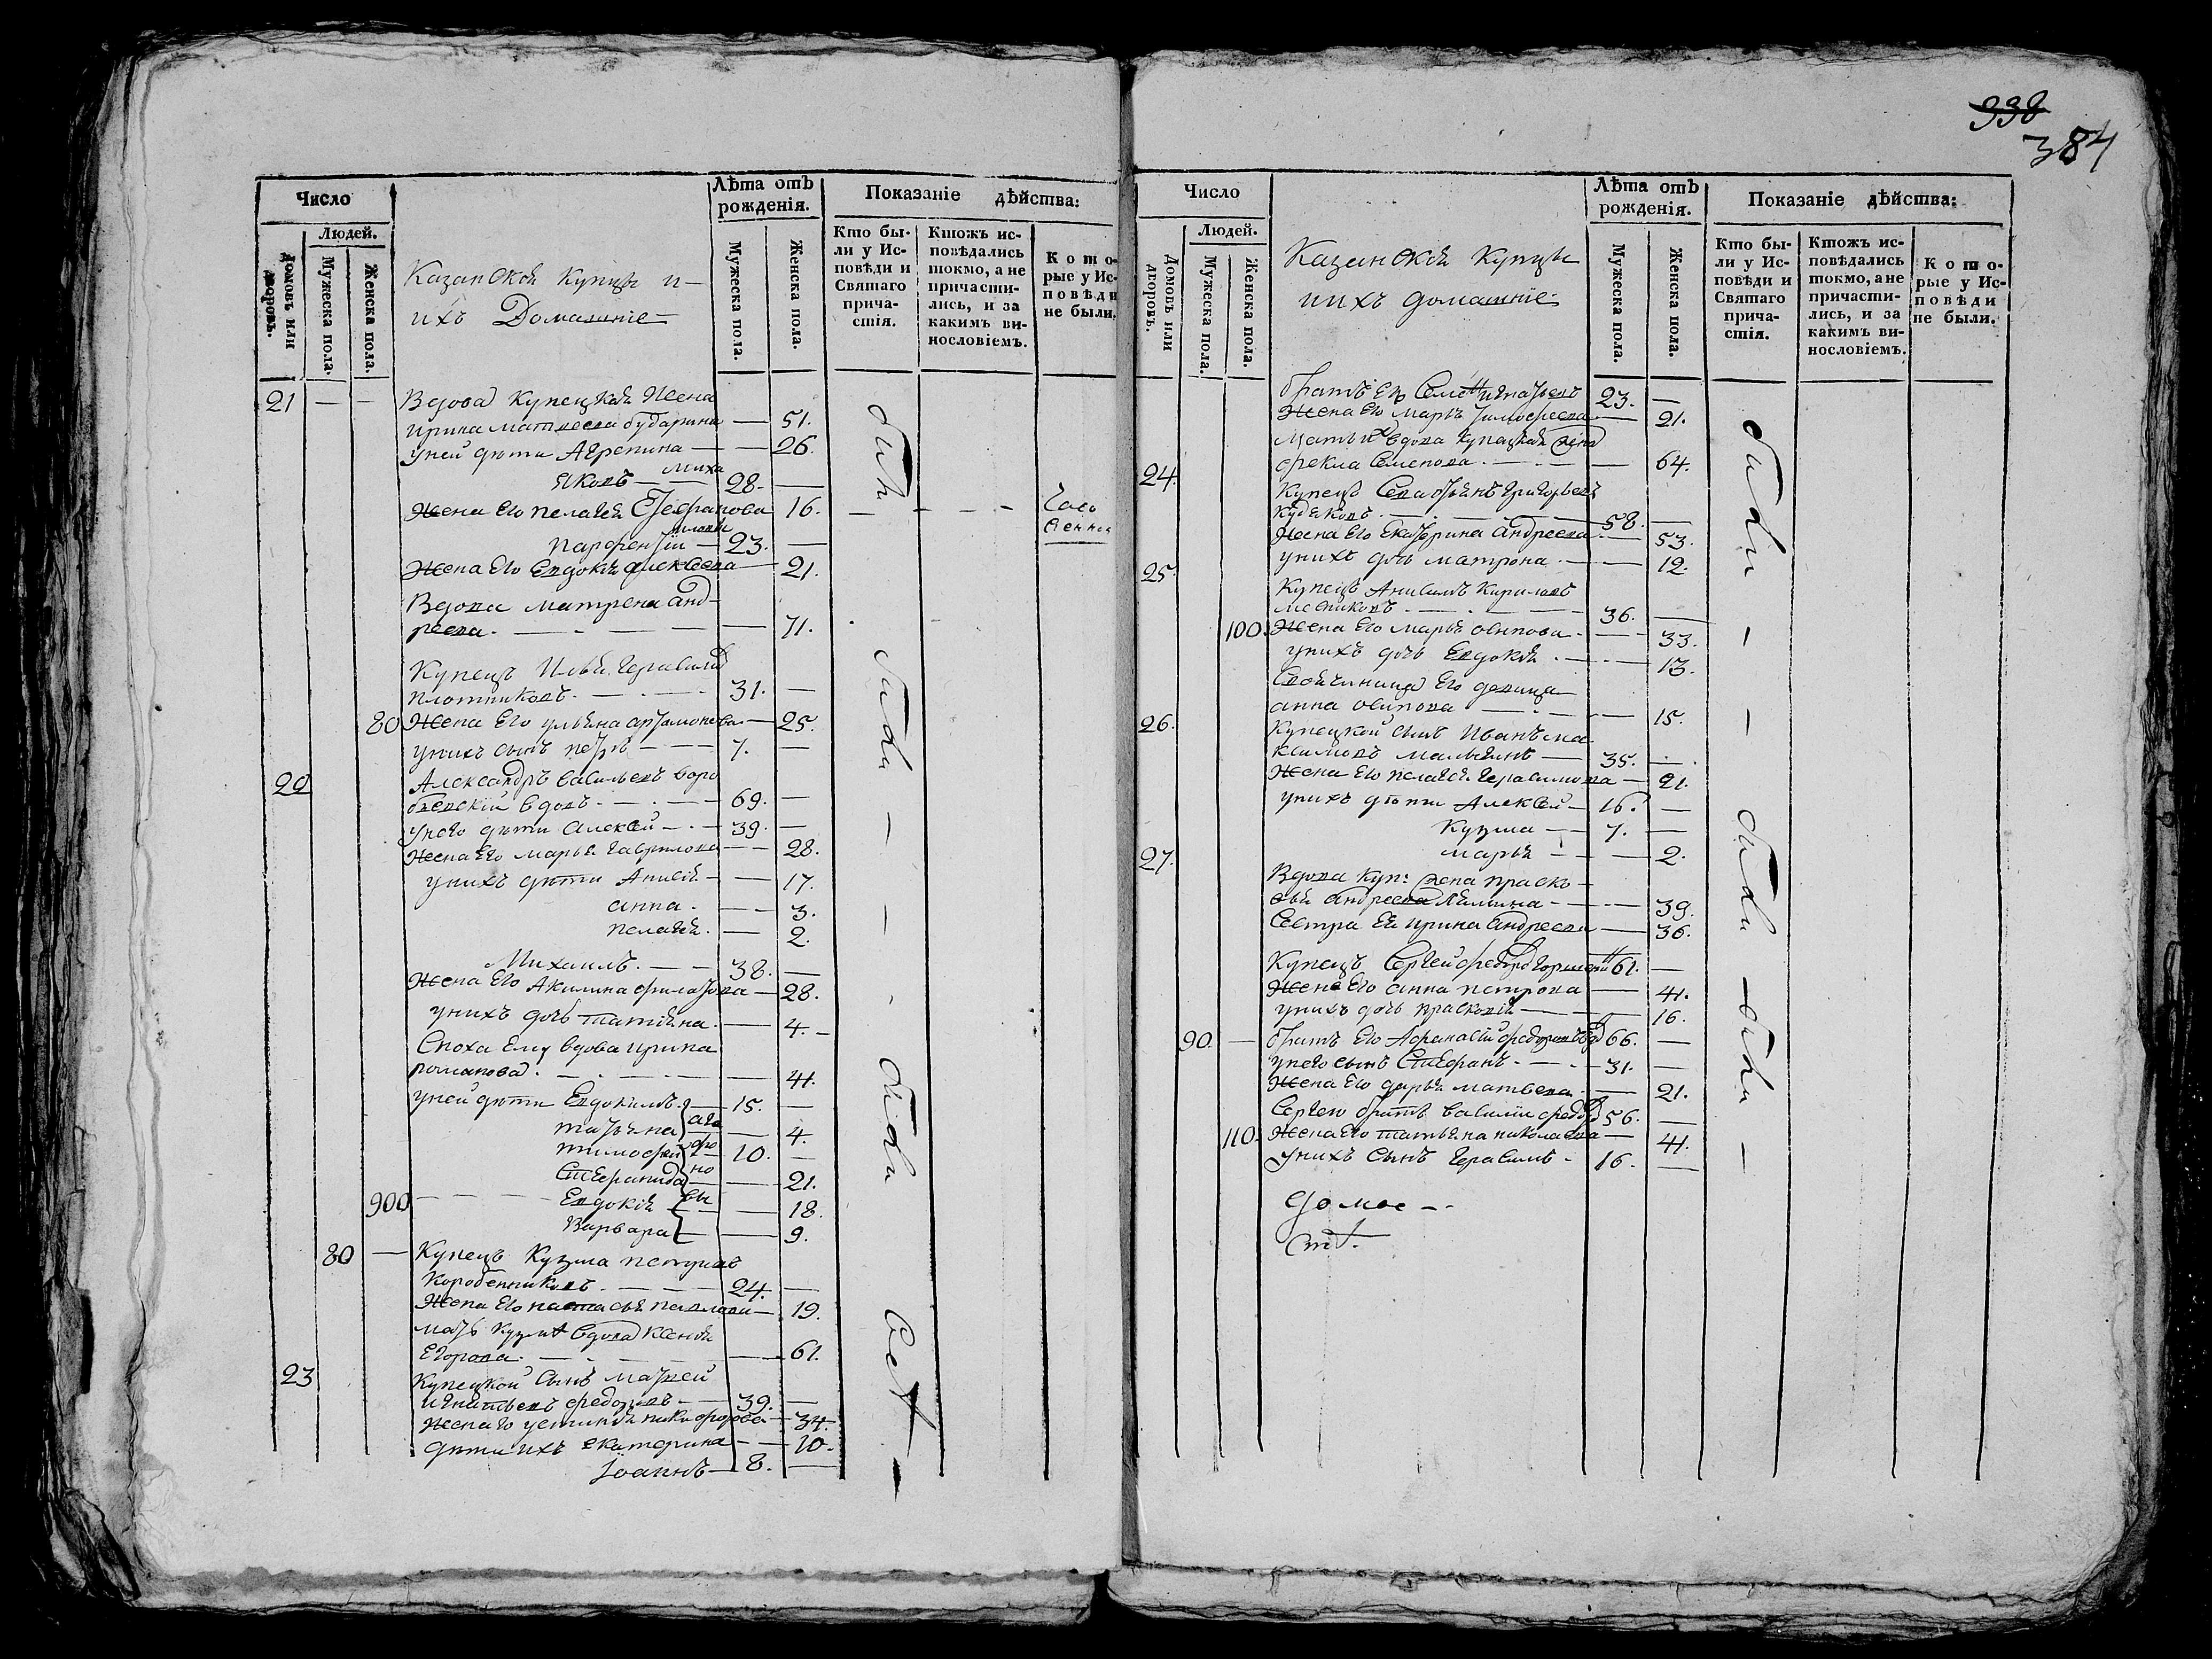 938
384
Число
Людей.
Домовъ или дворовъ.
Мужеска пола.
Женска пола.
Казанской купцы и
ихъ Домашніе
Лѣта отъ
рожденія.
Мужеска пола.
Женска пола.
Показаніе дѣйства:
Кто бы-
ли у Ис-
повѣди и
Святаго
прича-
стія.
Ктожъ ис-
повѣдались
токмо, а не
причасти-
лись, и за
какимъ ви-
нословіемъ.
К о т о-
рые у Ис-
п о в ѣ д и
не были.
21 — — Вдова купецкая жена
Ирина Матвеева Бударина — 51.
у ней дѣти Агрепина — 26.
Яковъ — 28. —
Жена его Пелагея Стефанова 16.
Парфентiй — 23. —
Жена его Евдокѣя Алексеева — 21.
Вдова Матрена Анд-
реева. — 71.
Купецъ Илья Герасимовъ
Плотниковъ. — 31. —
80 Жена его Ульяна Артамонова — 25.
у нихъ сынъ Петръ — 7. —
22 Александръ Васильевъ Воро
бьевскiй вдовъ. — 69. —
у него дѣти Алексѣй — 39. —
Жена его Марья Гаврилова — 28.
у нихъ дѣти Анисiя — 17.
Анна. — 3.
Пелагея. — 2.
Михаилъ. — 38. —
Жена его Акилина Филатова — 28.
у нихъ дочь Татiяна. — 4. —
Сноха ему вдова Ирина
Романова. — 41.
у ней дѣти Евдокимъ — 15. —
Татьяна — 4.
Тимофей — 10. —
Стефанида — 21.
900 — Евдокiя — 18.
Варвара — 9.
агафоновы
80 — Купецъ Кузма Петровъ
Коробенниковъ. — 24. —
Жена его Настасья Павлова — 19.
Мать Кузмѣ вдова Ксенья
Егорова. — 61.
23 Купецкой сынъ Матвей
Игнатьевъ Федоровъ — 39. —
Жена его Устинья Никифорова — 34.
дѣти ихъ Екатерина — 10.
Іоаннъ — 8. —
были
были
были
всѣ
Число
Людей.
Домовъ или дворовъ.
Мужеска пола.
Женска пола.
Казанской купцы
и ихъ домашніе
Лѣта отъ
рожденія.
Мужеска пола.
Женска пола.
Показаніе дѣйства:
Кто бы-
ли у Ис-
повѣди и
Святаго
прича-
стія.
Ктожъ ис-
повѣдались
токмо, а не
причасти-
лись, и за
какимъ ви-
нословіемъ.
К о т о-
рые у Ис-
п о в ѣ д и
не были.
братъ его Семенъ Игнатьевъ 23. —
Жена его Марья Тимофеева — 21.
Мать ихъ вдова купецкая жена
Фекла Семенова. — 64.
24. Купецъ Севастьянъ Григорьевъ
Кудяковъ. — 58. —
Жена его Екатерина Андреева — 53.
у нихъ дочь Матрона. — 12.
25. Купецъ Анисимъ Кириловъ
36. —
100. Жена его Марья Осипова — 33.
у нихъ дочь Евдокея. — 13.
Свояченица его девица
Анна Осипова — 15.
26. Купецкой сынъ Иванъ Ма
ксимовъ — 35. —
Жена его Пелагея Герасимова — 21.
у нихъ дѣти Алексѣй — 16. —
Кузма — 7. —
Марья — 2.
27. Вдова куп: жена Праско-
вья Андреева — 39.
Сестра ея Ирина Андреева — 36.
Купецъ Сергей Федоровъ 61. —
Жена его Анна Петрова — 41.
у нихъ дочь Прасковiя — 16.
90. — братъ его Афанасiй Федоровъ 66. —
у него сынъ Стефанъ — 31. —
Жена его Дарья Матвева — 21.
Сергею братъ Василiй Федоровъ 56. —
110. Жена его Татьяна Николаева — 41.
у нихъ сынъ Герасимъ — 16. —
были
были
были